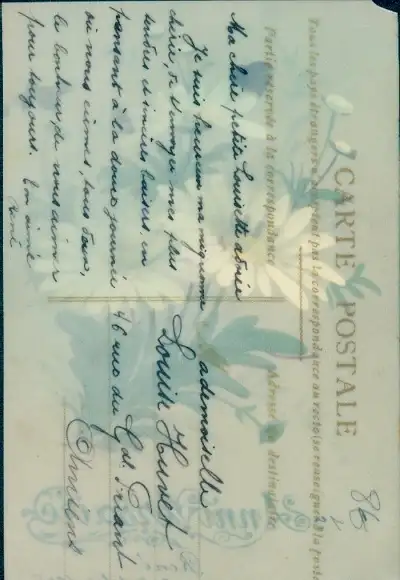 CARTE POSTALE
Tous les pays étrangers n'acceptent pas la correspondance au recto (se renseigner à la Poste)
Partie réservée à la correspondance
Adresse du destinataire
86
Ma chère petite Louisette adorée
Je suis heureux ma mignonne
chérie, de t'envoyer mes plus
tendres et sincères baisers en
pensant à la douce journée
où nous eûmes, tous deux,
le bonheur de nous aimer
pour toujours. Ton aimé
René
ademoiselle
Louise Huret
46 rue du Gal. Friant
Amiens